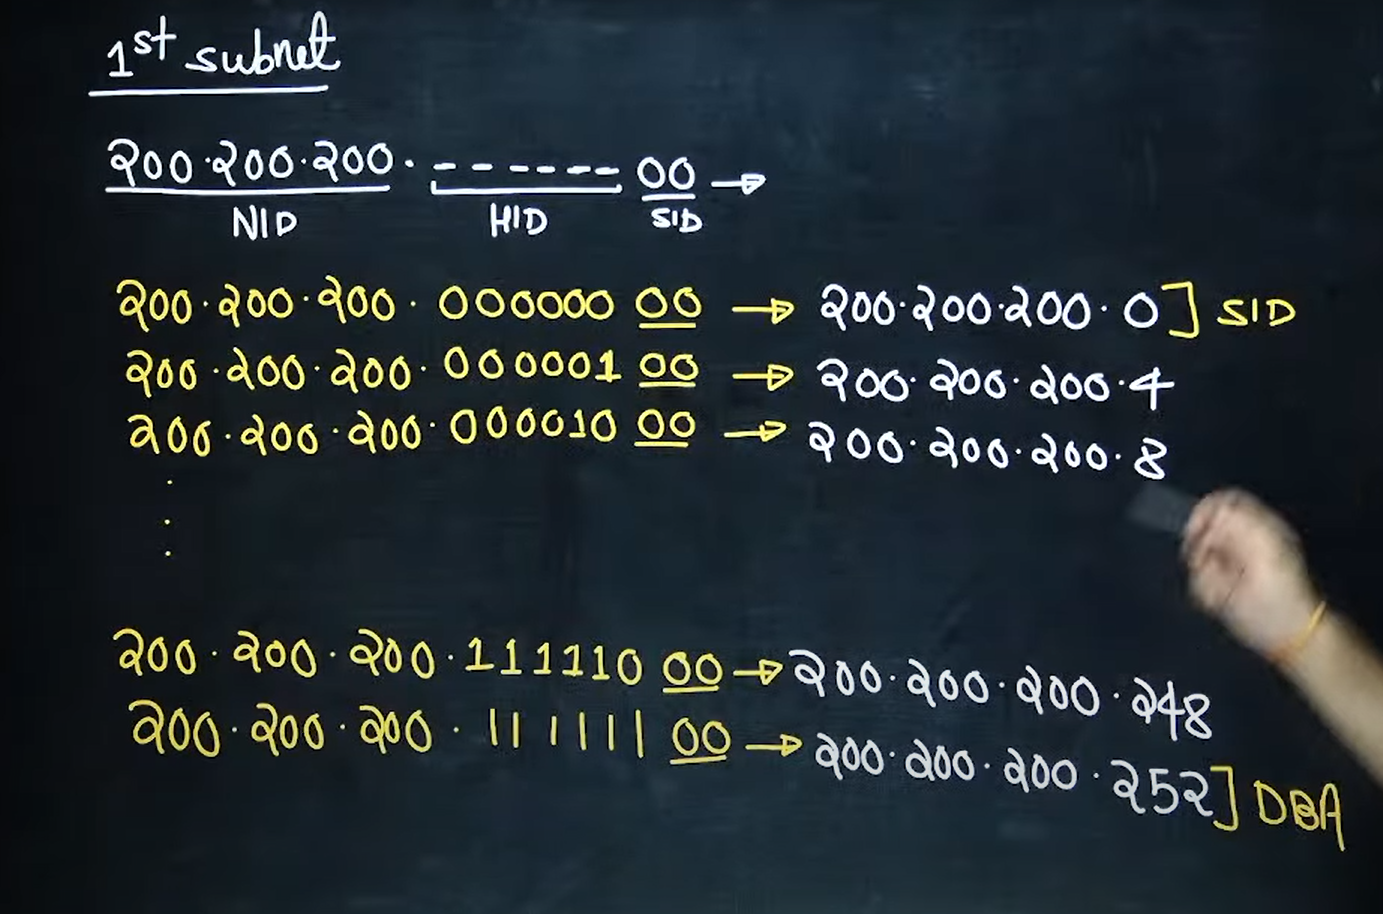 1st subnet
200.200.200. - - - - - - 00 →
NID HID SID
200.200.200.000000 00 → 200.200.200.0] SID
200.200.200.000001 00 → 200.200.200.4
200.200.200.000010 00 → 200.200.200.8
.
.
.
200.200.200.111110 00 → 200.200.200.248
200.200.200.111111 00 → 200.200.200.252] DBA